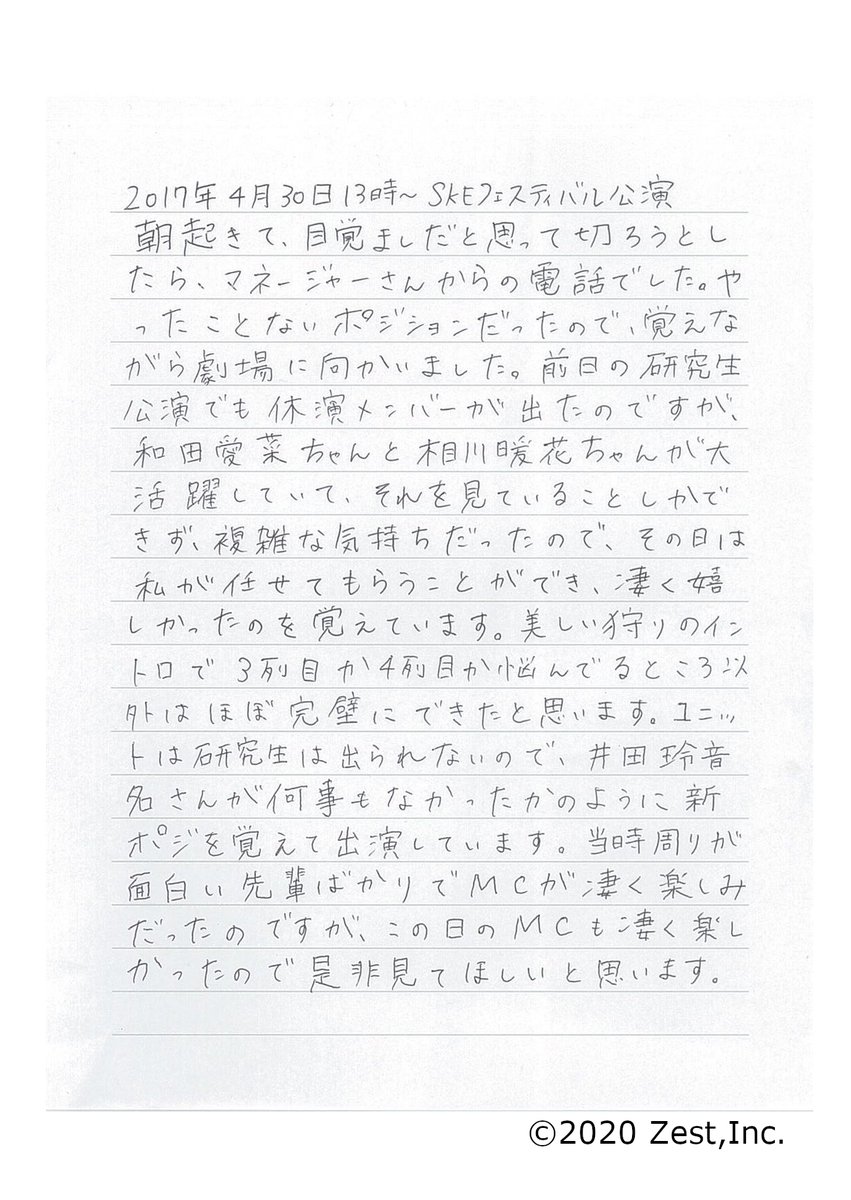 2017年4月30日13時~SKEフェスティバル公演
朝起きて、目覚ましだと思って切ろうとし
たら、マネージャーさんからの電話でした。や
ったことないポジションだったので、覚えな
がら劇場に向かいました。前日の研究生
公演でも休演メンバーが出たのですが、
和田愛菜ちゃんと相川暖花ちゃんが大
活躍していて、それを見ていることしかで
きず、複雑な気持ちだったので、その日は
私が任せてもらうことができ、凄く嬉
しかったのを覚えています。美しい狩りのイン
トロで3列目か4列目か悩んでるところ以
外はほぼ完璧にできたと思います。ユニッ
トは研究生は出られないので、井田玲音
名さんが何事もなかったかのように新
ポジを覚えて出演しています。当時周りが
面白い先輩ばかりでMCが凄く楽しみ
だったのですが、この日のMCも凄く楽し
かったので是非見てほしいと思います。
©2020 Zest,Inc.